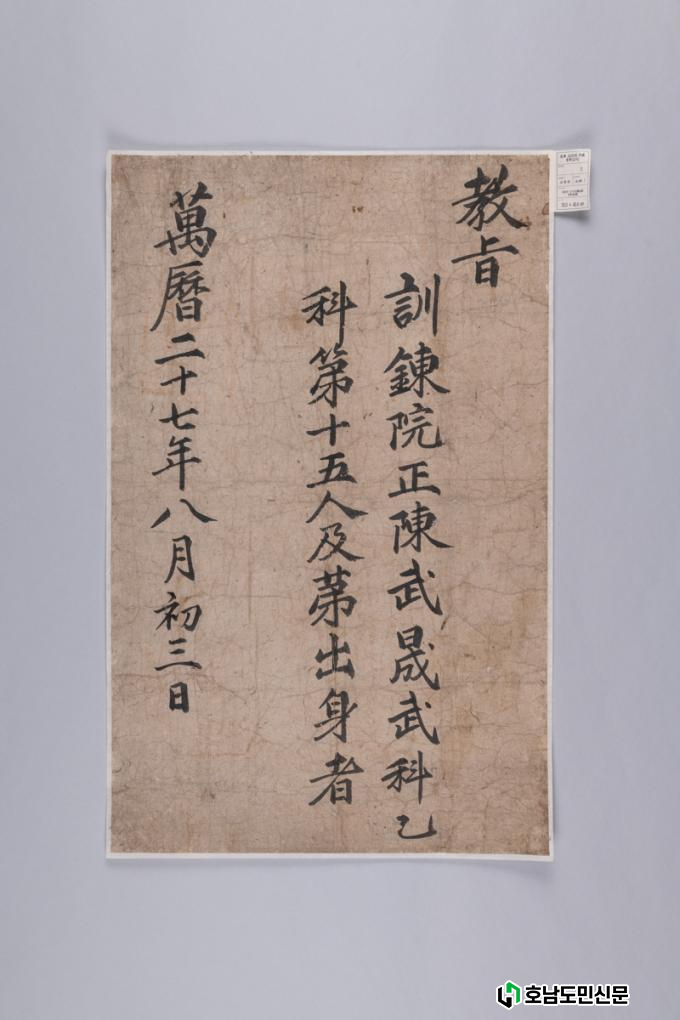 教旨
訓錬院正陳武晟武科乙
科第十五人及苐出身者
萬曆二十七年八月初三日
호남도민신문